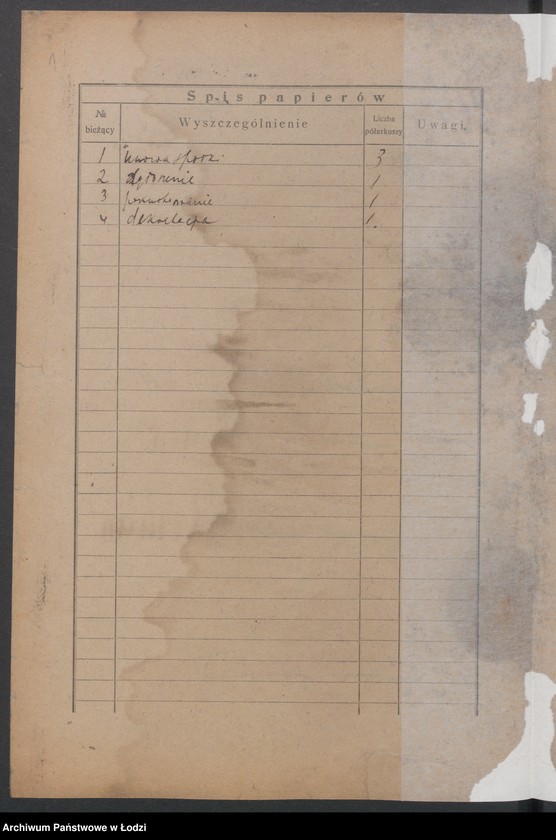 Spis papierów
№ bieżący Wyszczególnienie Liczba półarkuszy Uwagi.
1 Umowa społk. 3
2 zgłoszenie 1
3 1
4 deklaracja 1.
Archiwum Państwowe w Łodzi